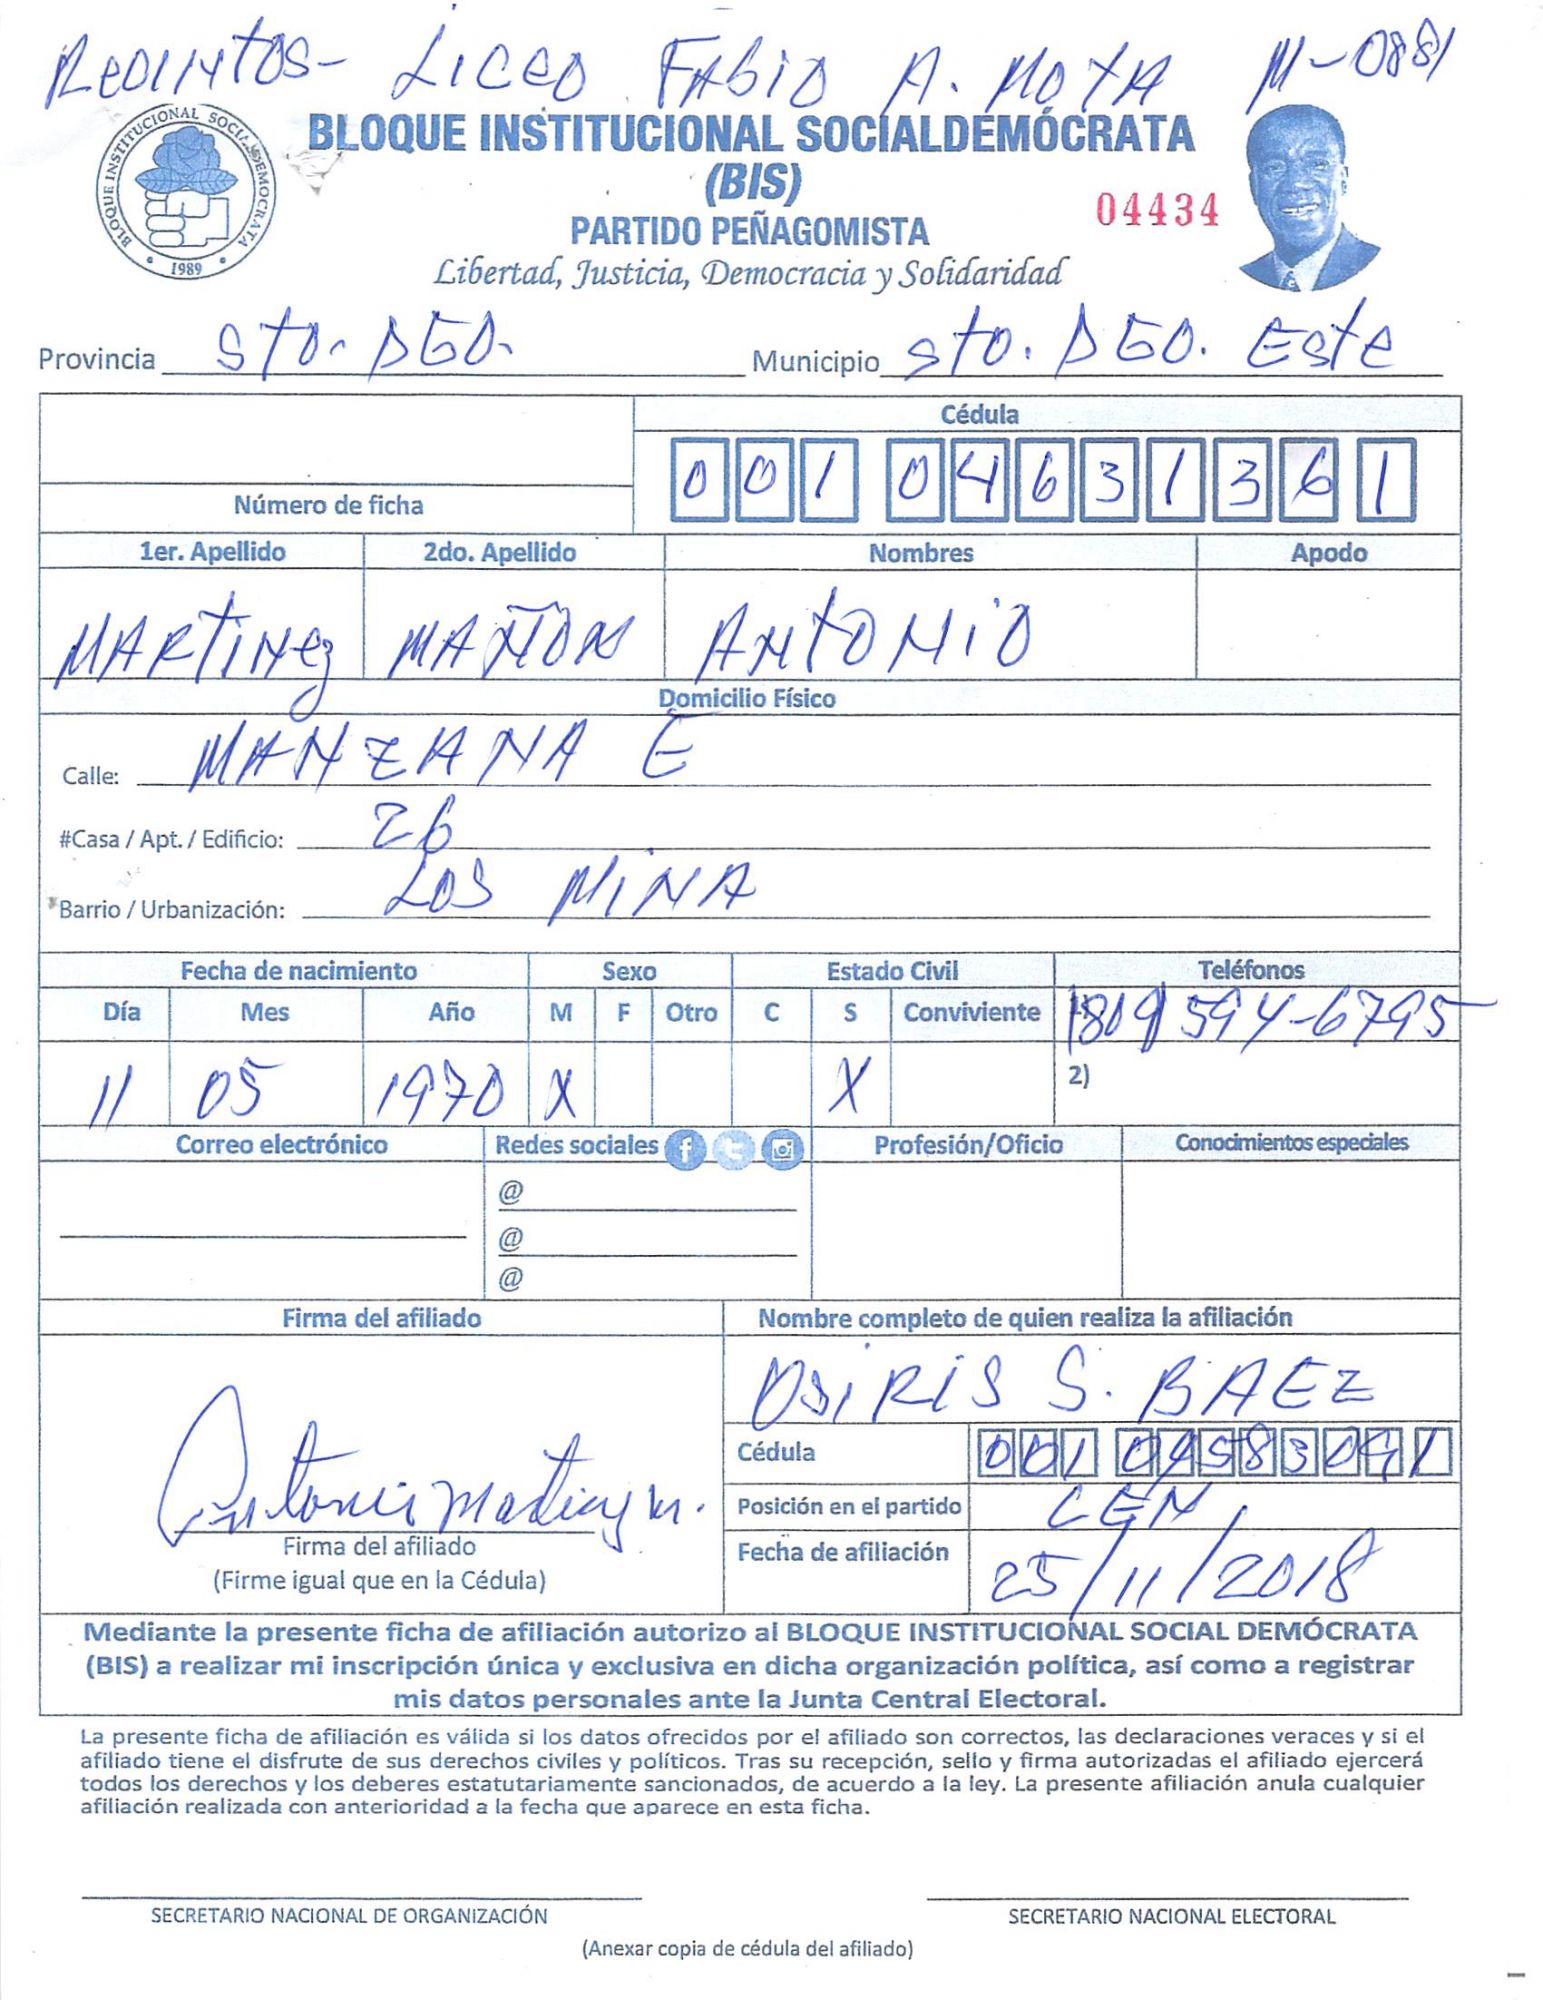 Recintos- Liceo Fabio A. Mota M-0881
BLOQUE INSTITUCIONAL SOCIALDEMÓCRATA
BLOQUE INSTITUCIONAL SOCIALDEMOCRATA
• 1989 •
(BIS)
04434
PARTIDO PEÑAGOMISTA
Libertad, Justicia, Democracia y Solidaridad
Provincia Sto. DGO. Municipio Sto. DGO. Este
Cédula
001 0463136 1
Número de ficha
1er. Apellido 2do. Apellido Nombres Apodo
MARTINez MAÑON ANTONIO
Domicilio Físico
Calle: MANZANA E
#Casa / Apt. / Edificio: 26
Barrio / Urbanización: LOS MINA
Fecha de nacimiento Sexo Estado Civil Teléfonos
Día Mes Año M F Otro C S Conviviente 1) 809 594-6795
11 05 1970 X X 2)
Correo electrónico Redes sociales Profesión/Oficio Conocimientos especiales
@
@
@
Firma del afiliado Nombre completo de quien realiza la afiliación
OSIRIS S. BAEZ
Cédula 001 0458309 1
Antonio Martinez M.
Posición en el partido CEN
Firma del afiliado
Fecha de afiliación 25/11/2018
(Firme igual que en la Cédula)
Mediante la presente ficha de afiliación autorizo al BLOQUE INSTITUCIONAL SOCIAL DEMÓCRATA
(BIS) a realizar mi inscripción única y exclusiva en dicha organización política, así como a registrar
mis datos personales ante la Junta Central Electoral.
La presente ficha de afiliación es válida si los datos ofrecidos por el afiliado son correctos, las declaraciones veraces y si el
afiliado tiene el disfrute de sus derechos civiles y políticos. Tras su recepción, sello y firma autorizadas el afiliado ejercerá
todos los derechos y los deberes estatutariamente sancionados, de acuerdo a la ley. La presente afiliación anula cualquier
afiliación realizada con anterioridad a la fecha que aparece en esta ficha.
SECRETARIO NACIONAL DE ORGANIZACIÓN SECRETARIO NACIONAL ELECTORAL
(Anexar copia de cédula del afiliado)